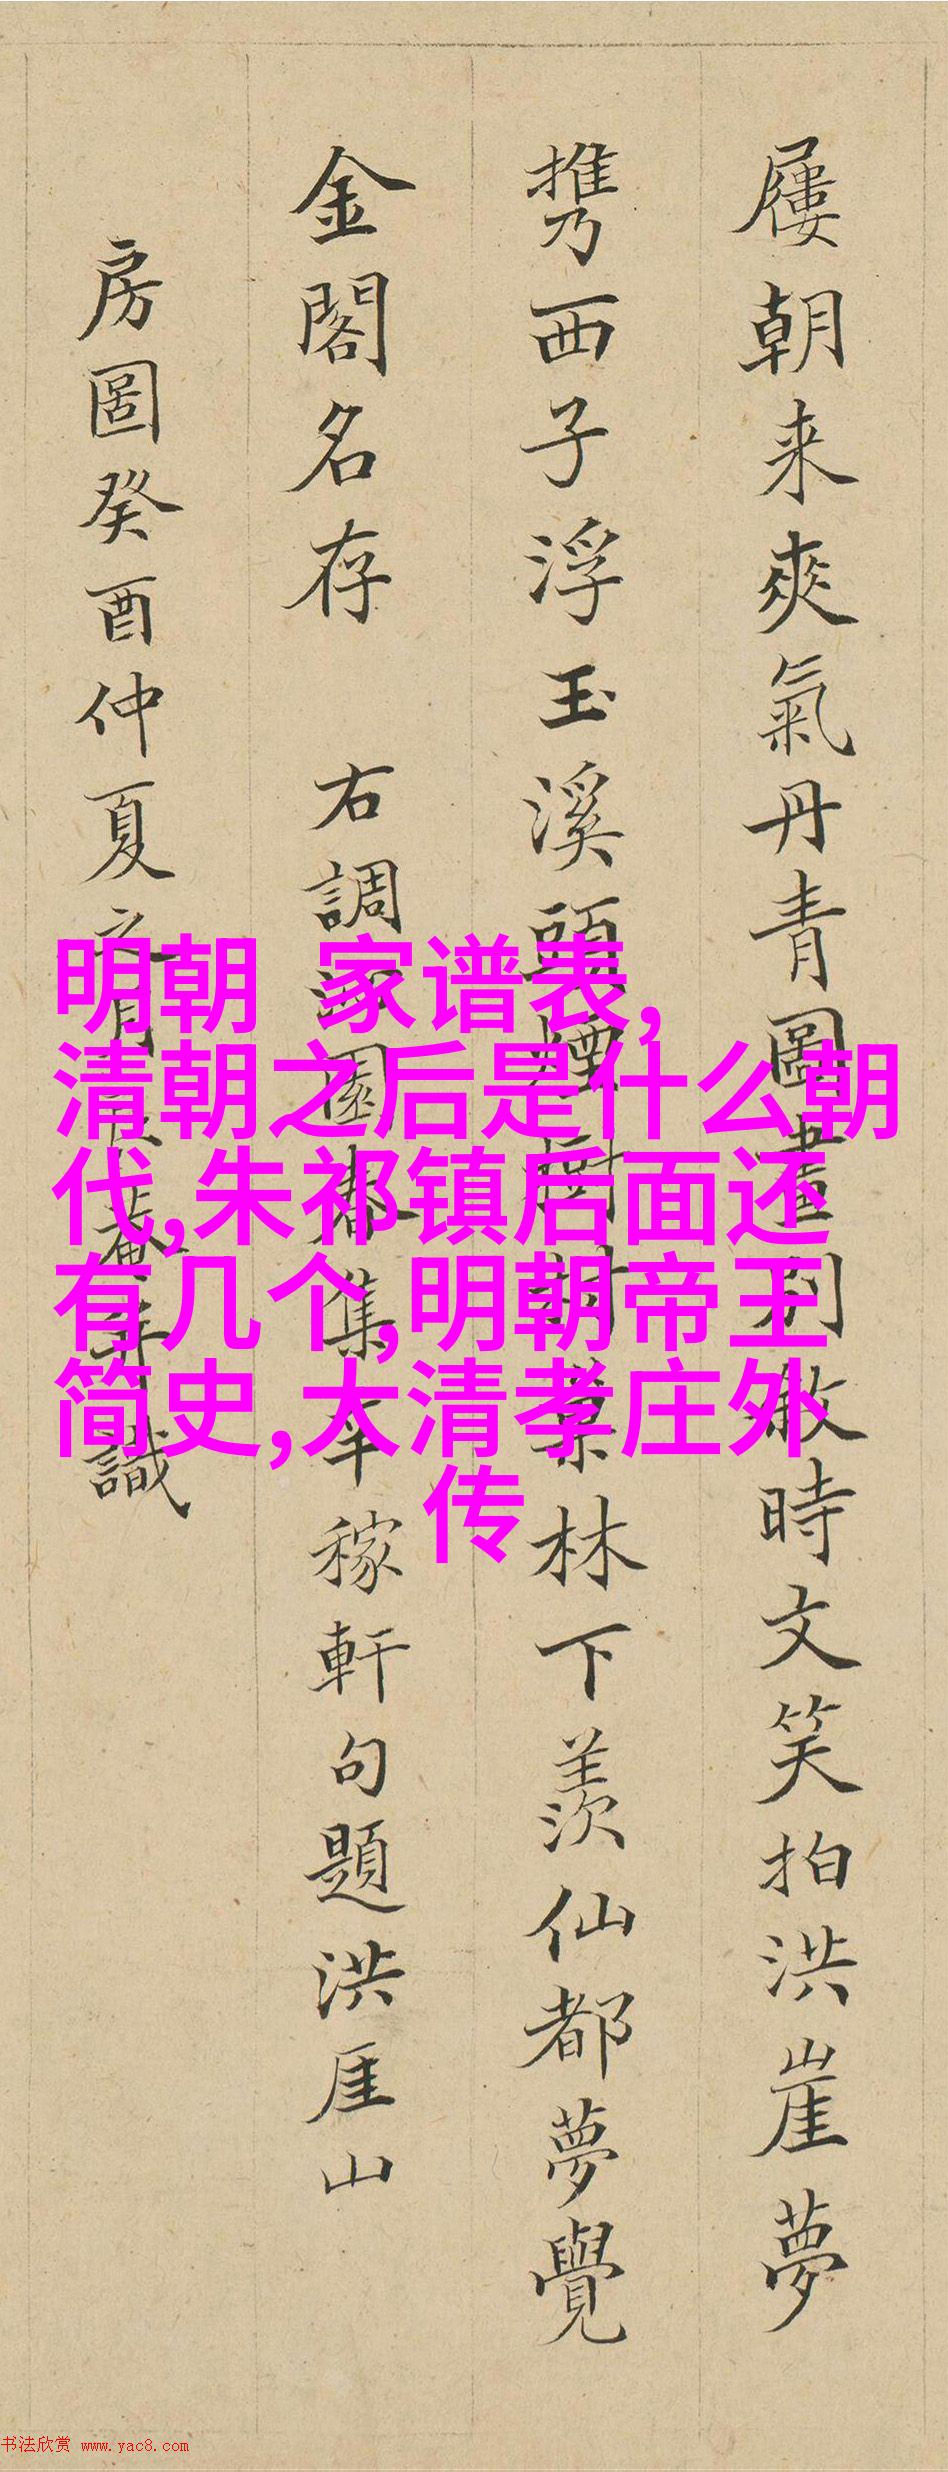 屨朝来爽氣丹青圖畫別時文笑拍洪崖夢
携西子浮玉溪頭煙樹村林下羨仙都夢覺
金閣名存 右調沁園春集辛稼軒句題洪厓山
房圖癸酉仲夏之月菴識
明朝 家谱表,
清朝之后是什么朝
代,朱祁镇后面还
有几个,明朝帝王
简史,大清孝庄外
传
书法欣赏 www.yac8.com